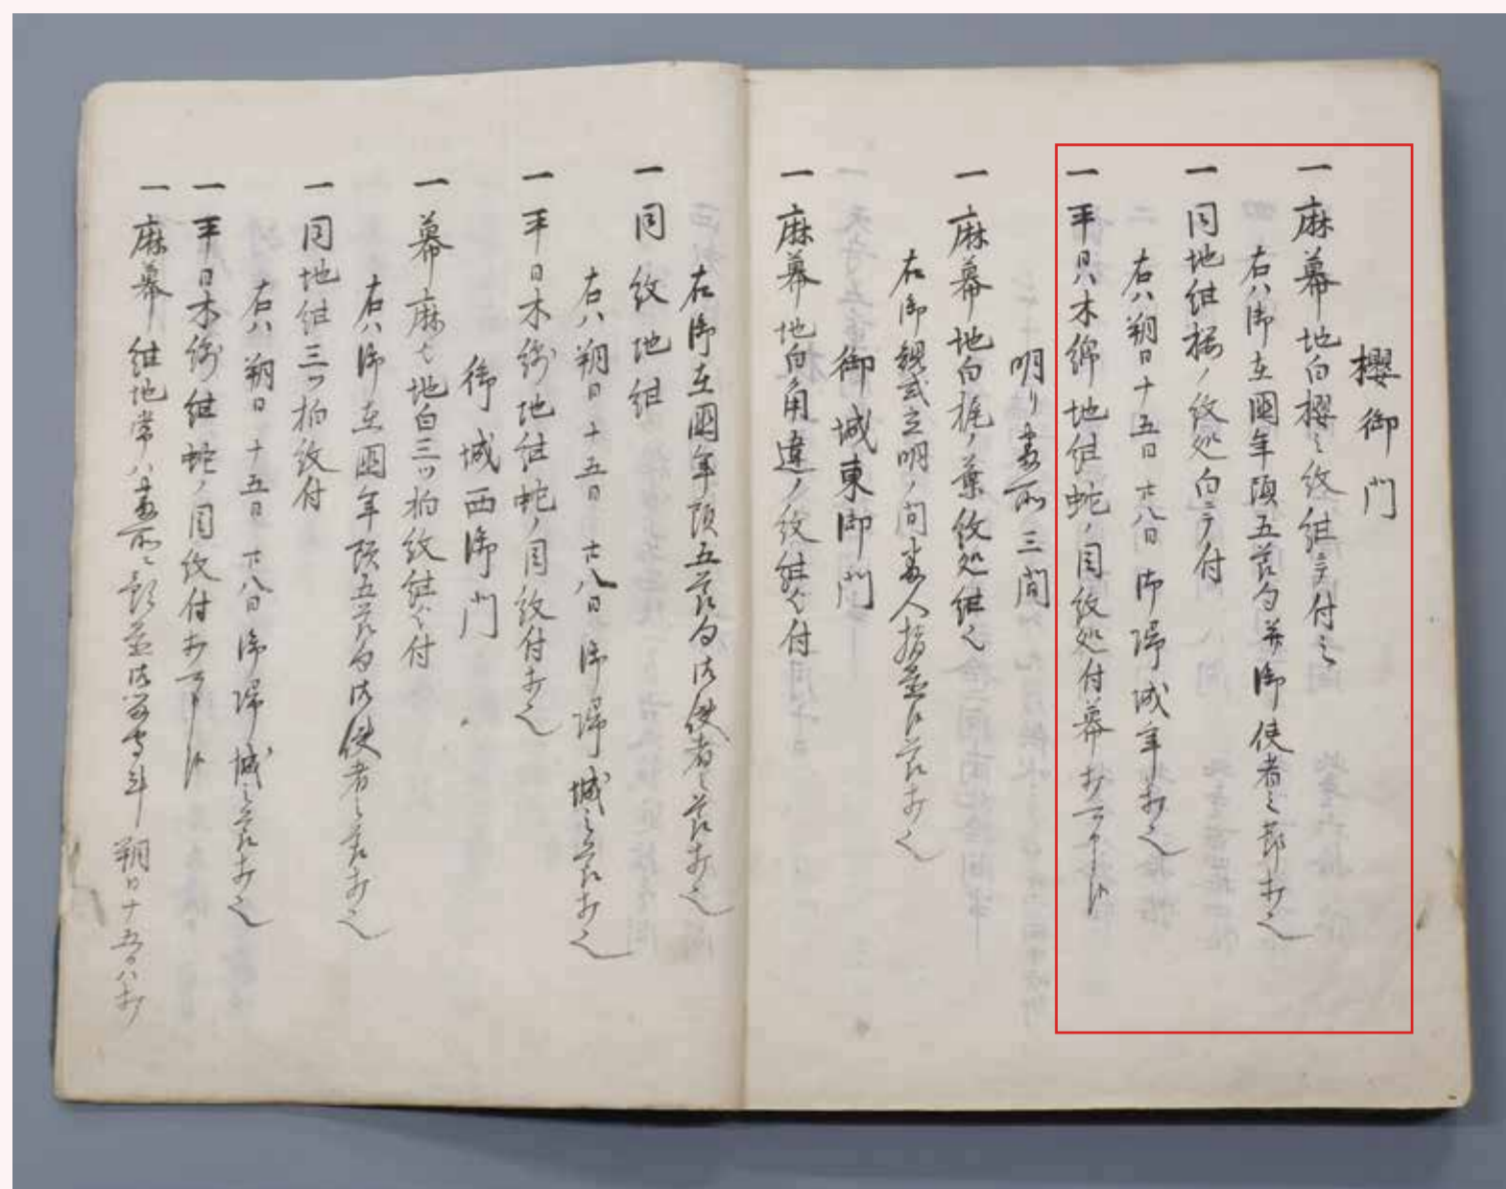 櫻御門
一麻幕地白櫻之紋紺ニテ付之
右ハ御在國年頭五節句并御使者之節打之
一同地紺桜ノ紋処白ニテ付
右ハ朔日十五日廿八日御帰城年打之
一平日ハ木綿地紺蛇ノ目紋処付幕打可申候
明り番所三間
一麻幕地白梶ノ葉紋処紺之
右御規式立明ノ間番人指置候節打之
御城東御門
一麻幕地白角違ノ紋紺ニ付
右御在國年頭五節句御使者之節打之
一同紋地紺
右ハ朔日十五日廿八日御帰城之節打之
一平日木綿地紺蛇ノ目紋付打之
御城西御門
一幕麻ニ地白三ツ柏紋紺ニ付
右ハ御在國年頭五節句御使者之節打之
一同地紺三ツ柏紋付
右ハ朔日十五日廿八日御帰城之節打之
一平日木綿紺蛇ノ目紋付打可申候
一麻幕紺地常ハ番所ニ 朔日十五日ハ打